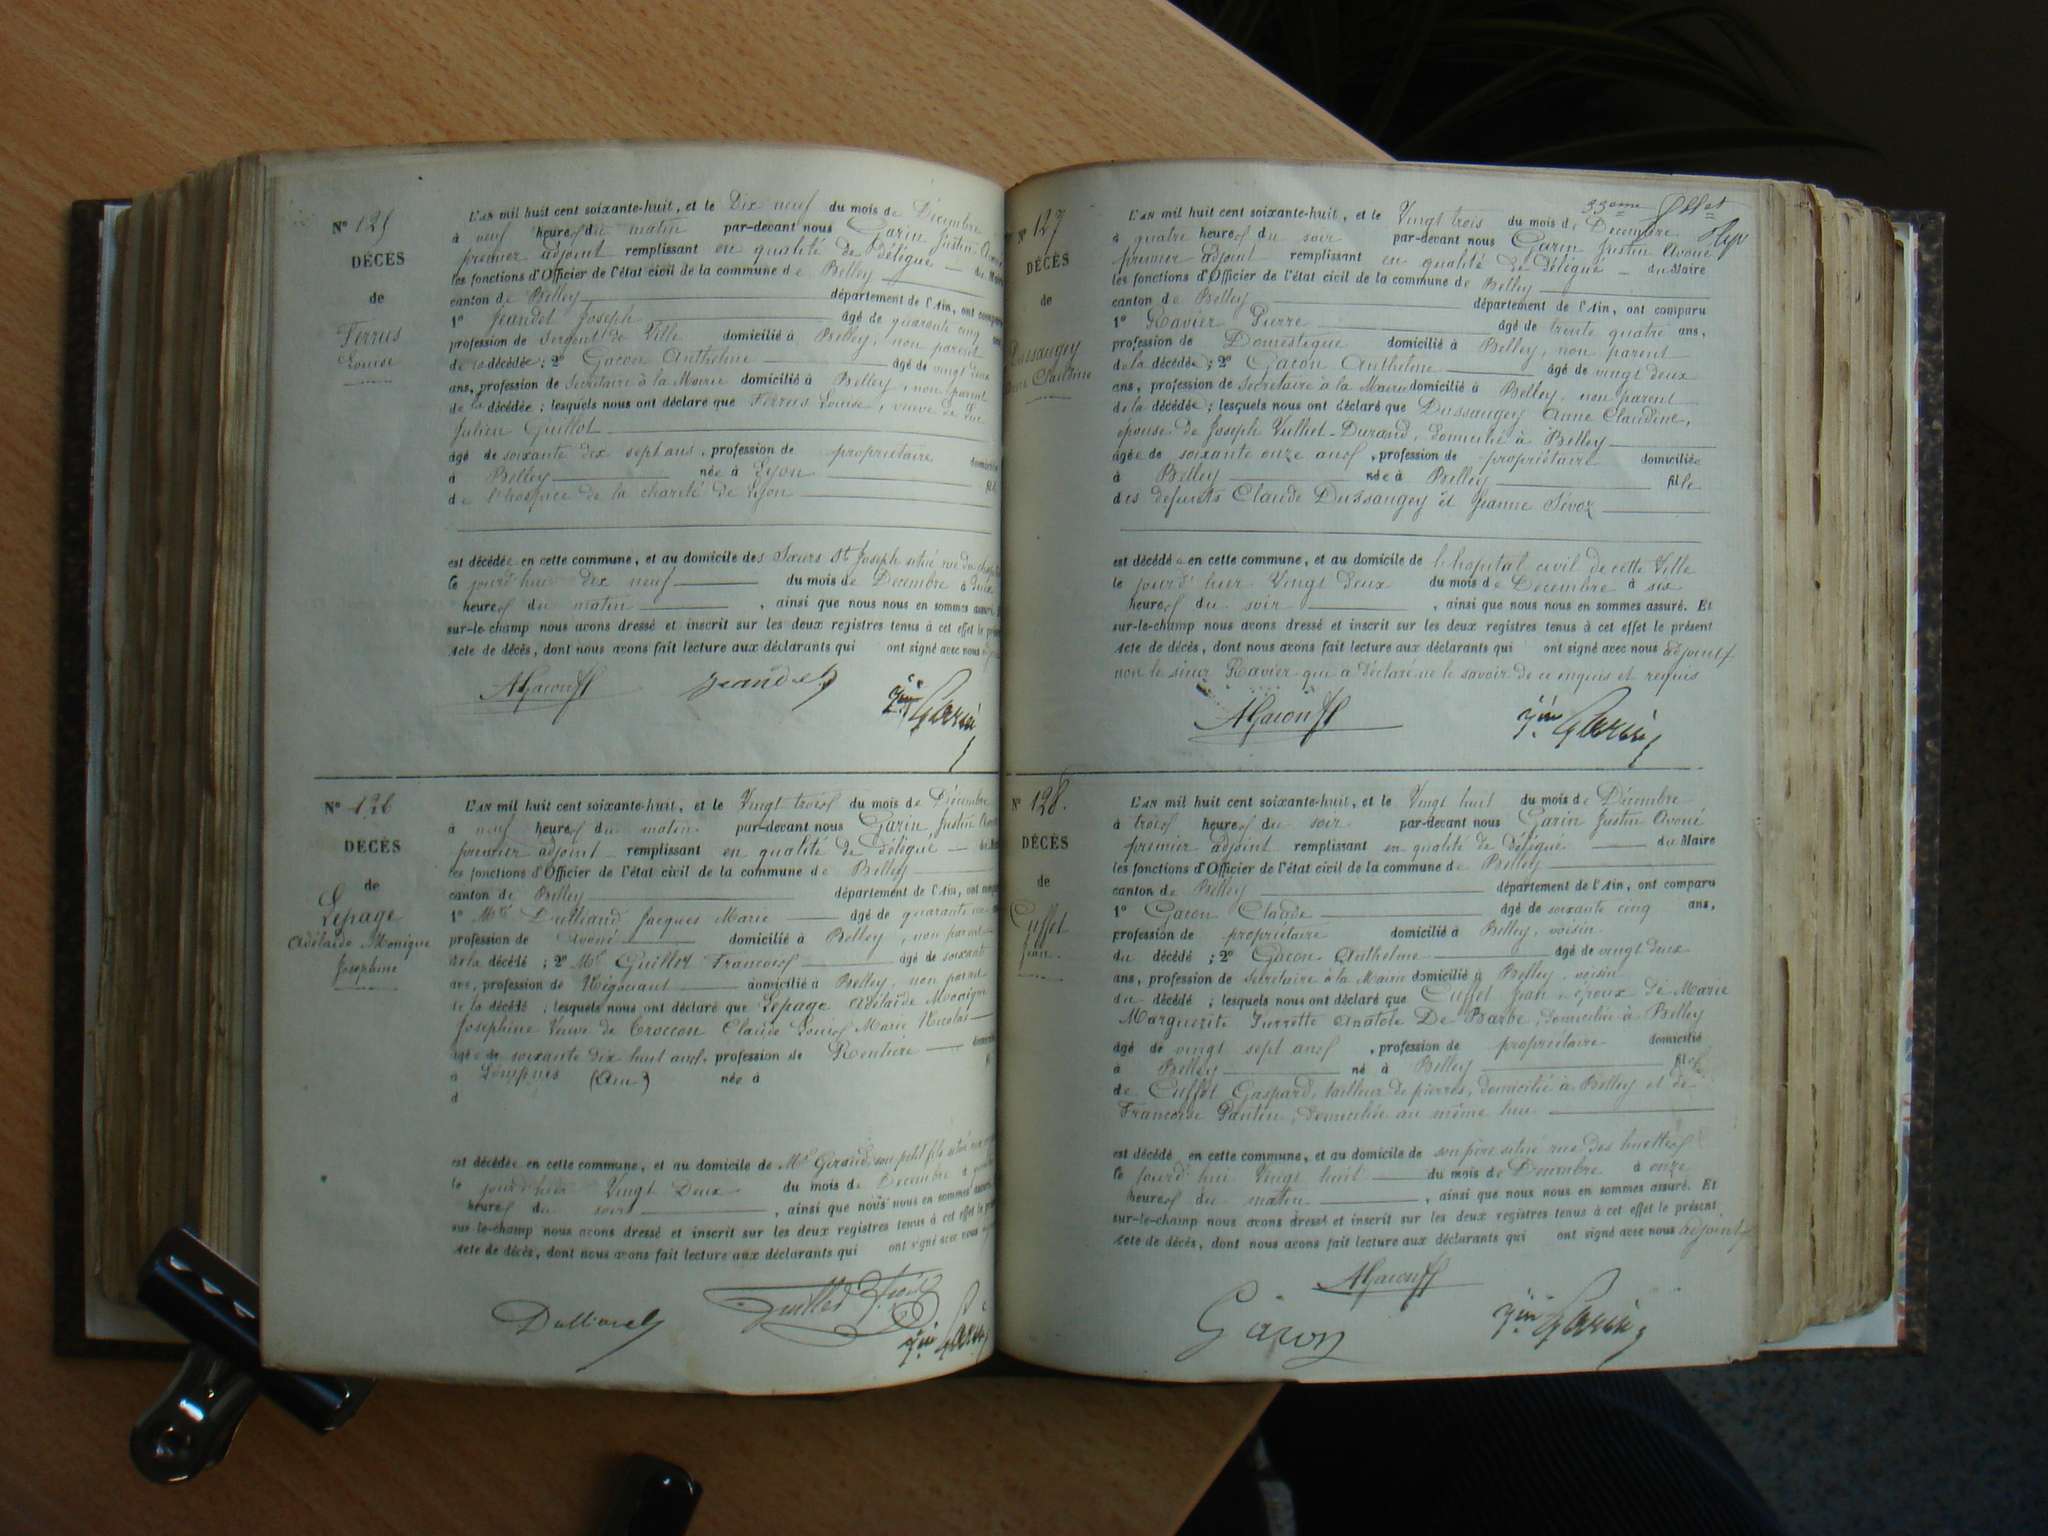 N° 125
DÉCÈS
de
Ferrus
Louise
L'AN mil huit cent soixante-huit, et le Dix neuf du mois de Décembre
à neuf heures du matin par-devant nous Garin Justin Avoué
premier adjoint remplissant en qualité de Délégué du Maire
les fonctions d'Officier de l'état civil de la commune de Belley
canton de Belley département de l'Ain, ont comparu
1° Jeandet Joseph âgé de quarante cinq ans
profession de Sergent de Ville domicilié à Belley, non parent
de la décédée ; 2° Gacon Anthelme âgé de vingt deux
ans, profession de Secrétaire à la Mairie domicilié à Belley, non parent
de la décédée ; lesquels nous ont déclaré que Ferrus Louise, veuve de
Julien Guillot
âgé de soixante dix sept ans, profession de propriétaire domiciliée
à Belley née à Lyon fille
de l'hospice de la charité de Lyon
est décédée en cette commune, et au domicile des Sœurs St Joseph situé rue du
le jourd'hui dix neuf du mois de Décembre à
heures du matin , ainsi que nous nous en sommes assuré. Et
sur-le-champ nous avons dressé et inscrit sur les deux registres tenus à cet effet le présent
acte de décès, dont nous avons fait lecture aux déclarants qui ont signé avec nous
AGacon
Jeandet
Jin Garin
N° 126
DÉCÈS
de
Lepage
Adélaïde Monique
Josephine
L'AN mil huit cent soixante-huit, et le Vingt trois du mois de Décembre
à neuf heures du matin par-devant nous Garin Justin Avoué
premier adjoint remplissant en qualité de Délégué du Maire
les fonctions d'Officier de l'état civil de la commune de Belley
canton de Belley département de l'Ain, ont comparu
1° Mre Dulliand Jacques Marie âgé de quarante
profession de Avoué domicilié à Belley, non parent
de la décédé ; 2° Mr Guillet François âgé de soixante
ans, profession de Négociant domicilié à Belley, non parent
de la décédé ; lesquels nous ont déclaré que Lepage Adélaïde Monique
Josephine Veuve de Croccon Claude Louis Marie Nicolas
âgée de soixante dix huit ans, profession de Rentière domiciliée
à Lompnes (Ain) née à
d
est décédée en cette commune, et au domicile de Mr Geraud son petit fils situé
le jourd'hier Vingt Deux du mois de Décembre à
heures du soir , ainsi que nous nous en sommes assuré.
sur-le-champ nous avons dressé et inscrit sur les deux registres tenus à cet effet le
acte de décès, dont nous avons fait lecture aux déclarants qui ont signé avec nous
Dulliand
Guillet
Jin Garin
33eme
N° 127
DÉCÈS
de
Dussaugey
Anne Claudine
L'AN mil huit cent soixante-huit, et le Vingt trois du mois de Décembre
à quatre heures du soir par-devant nous Garin Justin Avoué
premier adjoint remplissant en qualité de Délégué du Maire
les fonctions d'Officier de l'état civil de la commune de Belley
canton de Belley département de l'Ain, ont comparu
1° Ravier Pierre âgé de trente quatre ans,
profession de Domestique domicilié à Belley, non parent
de la décédée ; 2° Gacon Anthelme âgé de vingt deux
ans, profession de Secrétaire à la Mairie domicilié à Belley, non parent
de la décédée ; lesquels nous ont déclaré que Dussaugey Anne Claudine,
épouse de Joseph Vulliet-Durand, domicilié à Belley
âgée de soixante onze ans, profession de propriétaire domiciliée
à Belley née à Belley fille
des défunts Claude Dussaugey et Jeanne Sévoz
est décédée en cette commune, et au domicile de l'hopital civil de cette Ville
le jourd'hier Vingt Deux du mois de Décembre à six
heures du soir , ainsi que nous nous en sommes assuré. Et
sur-le-champ nous avons dressé et inscrit sur les deux registres tenus à cet effet le présent
acte de décès, dont nous avons fait lecture aux déclarants qui ont signé avec nous adjoint
non le sieur Ravier qui a déclaré ne le savoir de ce enquis et requis
AGacon
Jin Garin
N° 128.
DÉCÈS
de
Cuffet
Jean
L'AN mil huit cent soixante-huit, et le Vingt huit du mois de Décembre
à trois heures du soir par-devant nous Garin Justin Avoué
premier adjoint remplissant en qualité de Délégué du Maire
les fonctions d'Officier de l'état civil de la commune de Belley
canton de Belley département de l'Ain, ont comparu
1° Gacon Claude âgé de soixante cinq ans,
profession de propriétaire domicilié à Belley, voisin
du décédé ; 2° Gacon Anthelme âgé de vingt deux
ans, profession de Secrétaire à la Mairie domicilié à Belley, voisin
du décédé ; lesquels nous ont déclaré que Cuffet Jean époux de Marie
Marguerite Pierrette Anatole De Barbe, domiciliée à Belley
âgé de vingt sept ans , profession de propriétaire domicilié
à Belley né à Belley fils
de Cuffet Gaspard, tailleur de pierres, domicilié à Belley et de
Françoise Pantin, domiciliée au même lieu
est décédé en cette commune, et au domicile de son père situé rue des huettes
le jourd'hui Vingt huit du mois de Décembre à onze
heures du matin , ainsi que nous nous en sommes assuré. Et
sur-le-champ nous avons dressé et inscrit sur les deux registres tenus à cet effet le présent
acte de décès, dont nous avons fait lecture aux déclarants qui ont signé avec nous adjoint
AGacon
Gacon
Jin Garin